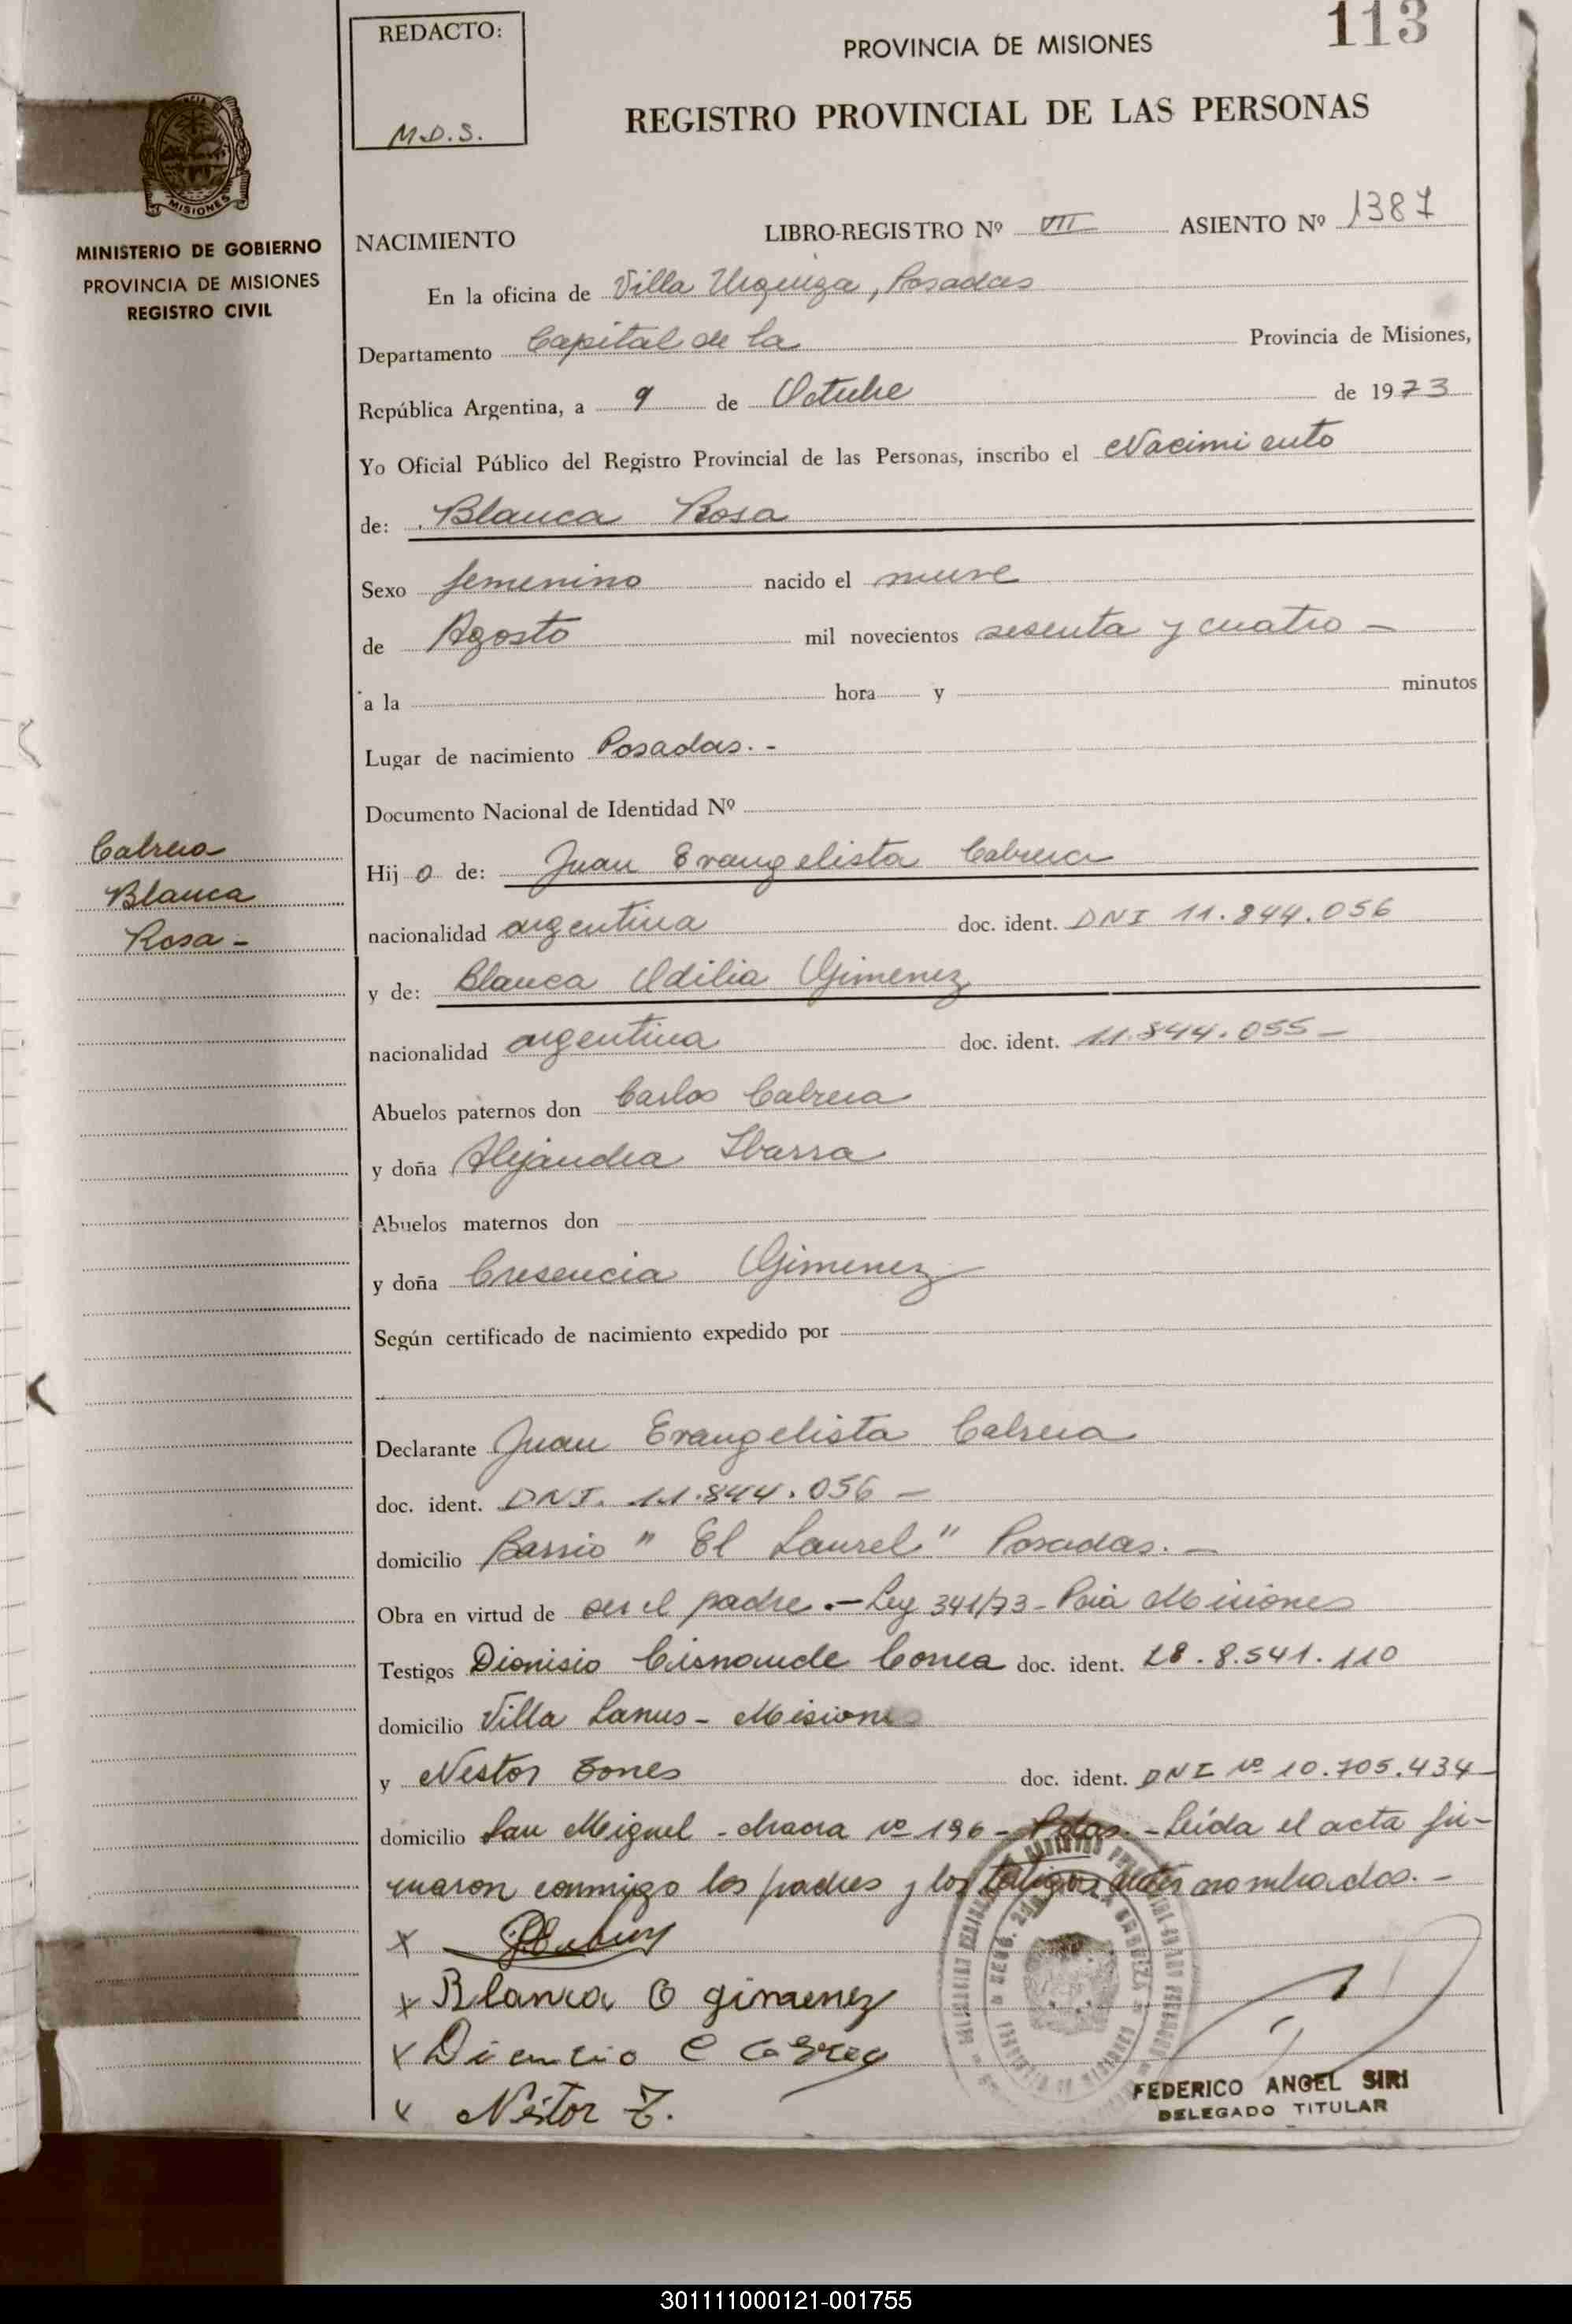 REDACTO:
M.D.S.
PROVINCIA DE MISIONES
113
REGISTRO PROVINCIAL DE LAS PERSONAS
MISIONES
MINISTERIO DE GOBIERNO
PROVINCIA DE MISIONES
REGISTRO CIVIL
NACIMIENTO LIBRO-REGISTRO Nº VII ASIENTO Nº 1387
En la oficina de Villa Urquiza, Posadas
Departamento Capital de la Provincia de Misiones,
República Argentina, a 9 de Octubre de 1973
Yo Oficial Público del Registro Provincial de las Personas, inscribo el Nacimiento
de: Blanca Rosa
Sexo femenino nacido el nueve
de Agosto mil novecientos sesenta y cuatro -
a la hora y minutos
Lugar de nacimiento Posadas. -
Documento Nacional de Identidad Nº
Cabrera
Blanca
Rosa -
Hij o de: Juan Evangelista Cabrera
nacionalidad argentina doc. ident. DNI 11.844.056
y de: Blanca Odilia Gimenez
nacionalidad argentina doc. ident. 11.844.055 -
Abuelos paternos don Carlos Cabrera
y doña Alejandra Ibarra
Abuelos maternos don
y doña Cresencia Gimenez
Según certificado de nacimiento expedido por
Declarante Juan Evangelista Cabrera
doc. ident. DNI. 11.844.056 -
domicilio Barrio " El Laurel" Posadas. -
Obra en virtud de ser el padre .- Ley 341/73 - Pcia Misiones
Testigos Dionisio Correa doc. ident. 8.541.110
domicilio Villa Lanus - Misiones
y Nestor doc. ident. DNI Nº 10.705.434
domicilio San Miguel - chacra Nº 196 - Pdas. - Leída el acta fir-
maron conmigo los padres y los testigos antes nombrados. -
x
x Blanca O gimenez
x
x Néstor
FEDERICO ANGEL SIRI
DELEGADO TITULAR
301111000121-001755